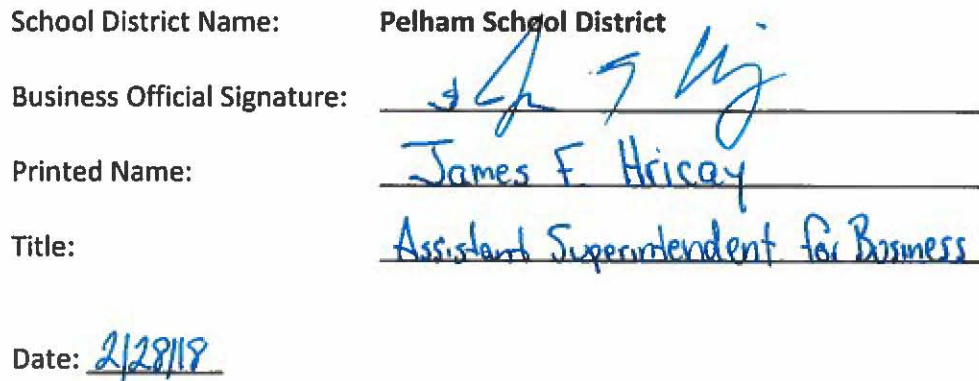 School District Name: Pelham School District
Business Official Signature:
Printed Name: James F. Hricay
Title: Assistant Superintendent for Business
Date: 2/28/18